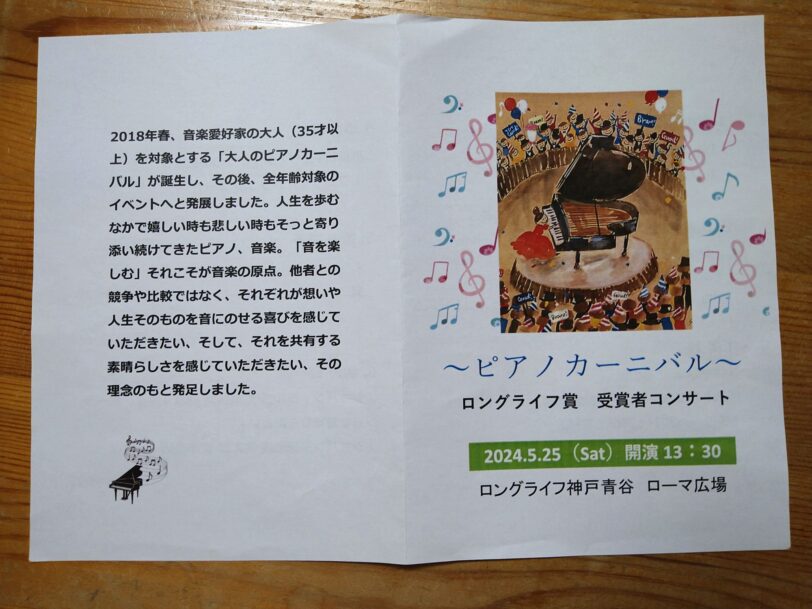 2018年春、音楽愛好家の大人（35才以
上）を対象とする「大人のピアノカーニ
バル」が誕生し、その後、全年齢対象の
イベントへと発展しました。人生を歩む
なかで嬉しい時も悲しい時もそっと寄り
添い続けてきたピアノ、音楽。「音を楽
しむ」それこそが音楽の原点。他者との
競争や比較ではなく、それぞれが想いや
人生そのものを音にのせる喜びを感じて
いただきたい、そして、それを共有する
素晴らしさを感じていただきたい、その
理念のもと発足しました。
Bravo!
～ピアノカーニバル～
ロングライフ賞　受賞者コンサート
2024.5.25（Sat）開演 13：30
ロングライフ神戸青谷　ローマ広場